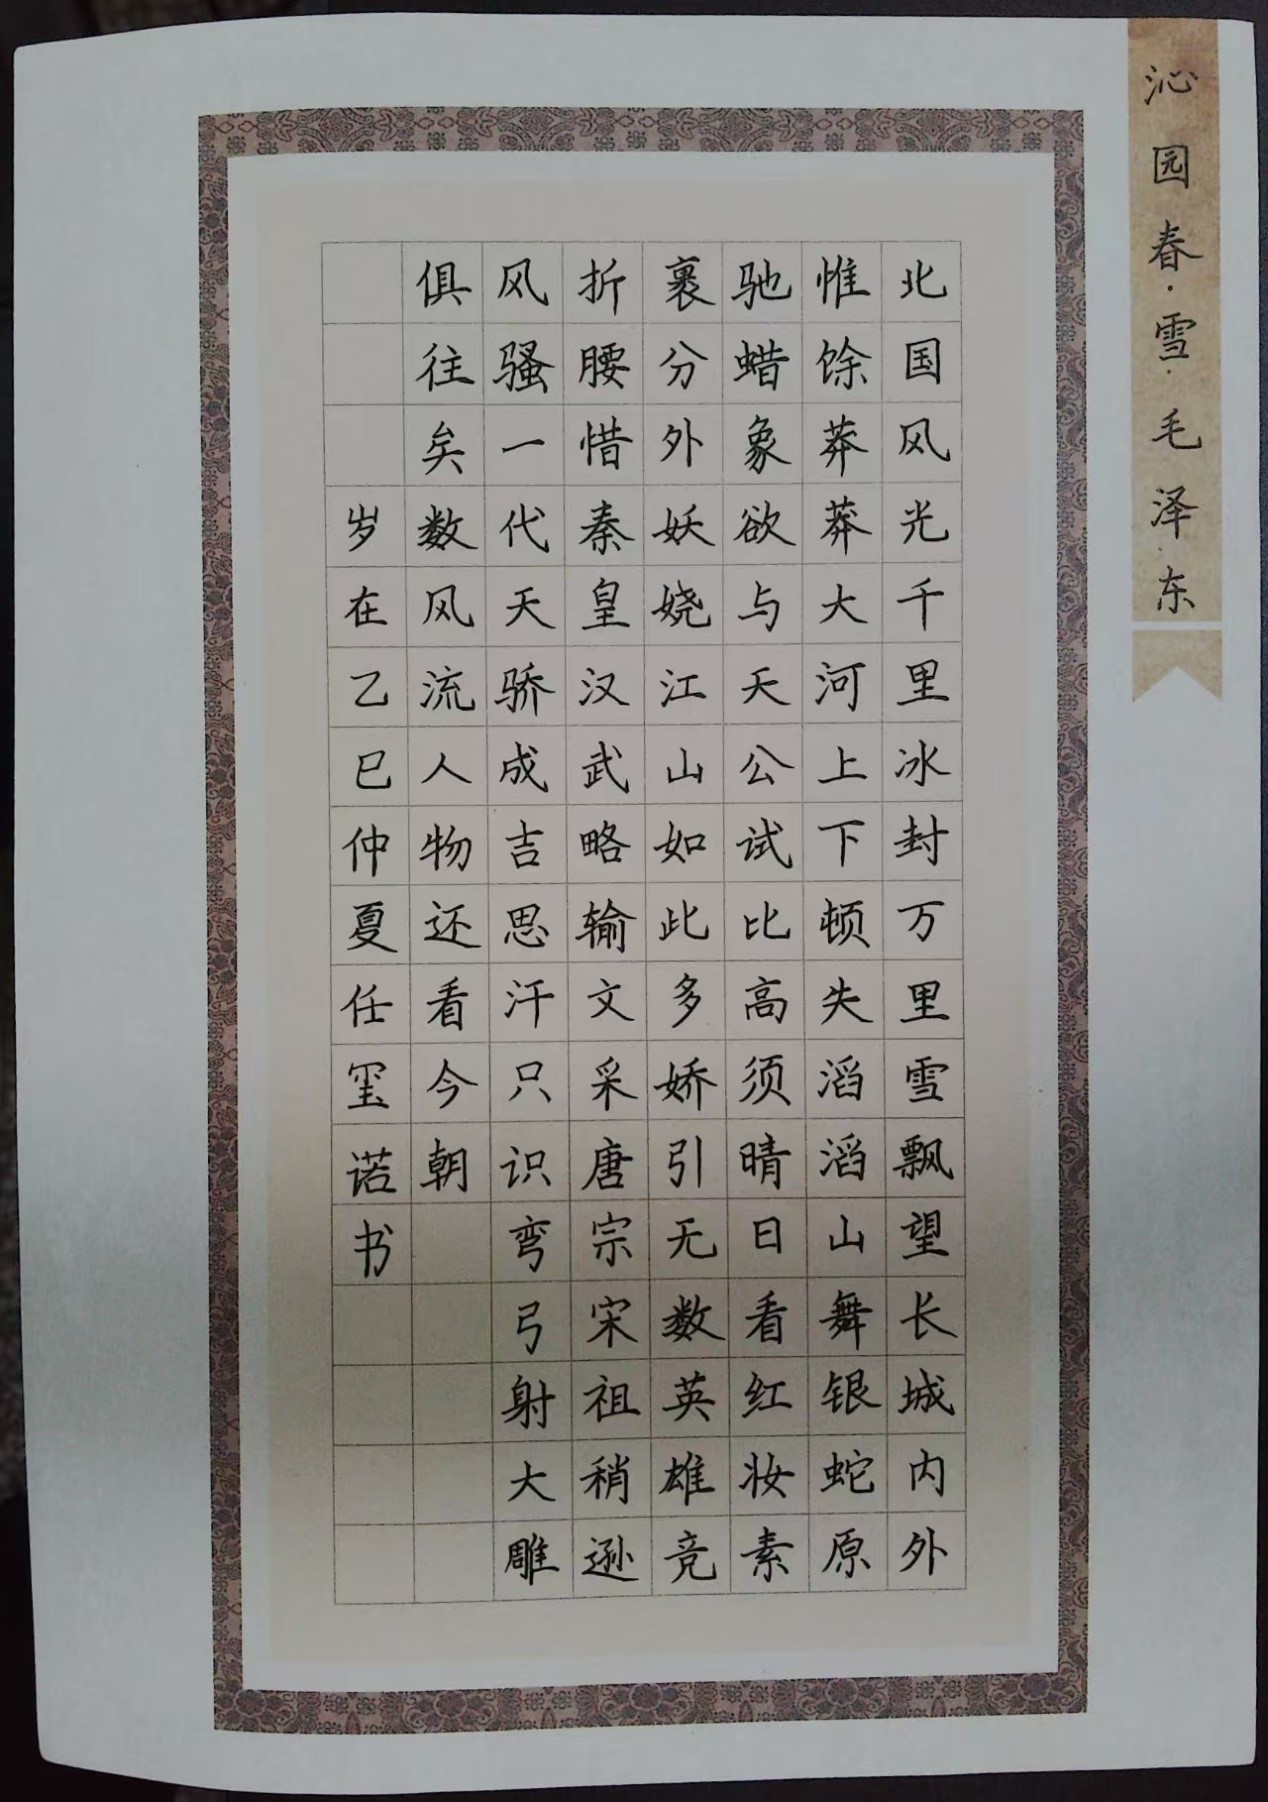 沁园春·雪·毛泽东
北国风光千里冰封万里雪飘望长城内外
惟馀莽莽大河上下顿失滔滔山舞银蛇原
驰蜡象欲与天公试比高须晴日看红妆素
裹分外妖娆江山如此多娇引无数英雄竞
折腰惜秦皇汉武略输文采唐宗宋祖稍逊
风骚一代天骄成吉思汗只识弯弓射大雕
俱往矣数风流人物还看今朝
岁在乙巳仲夏任玺诺书